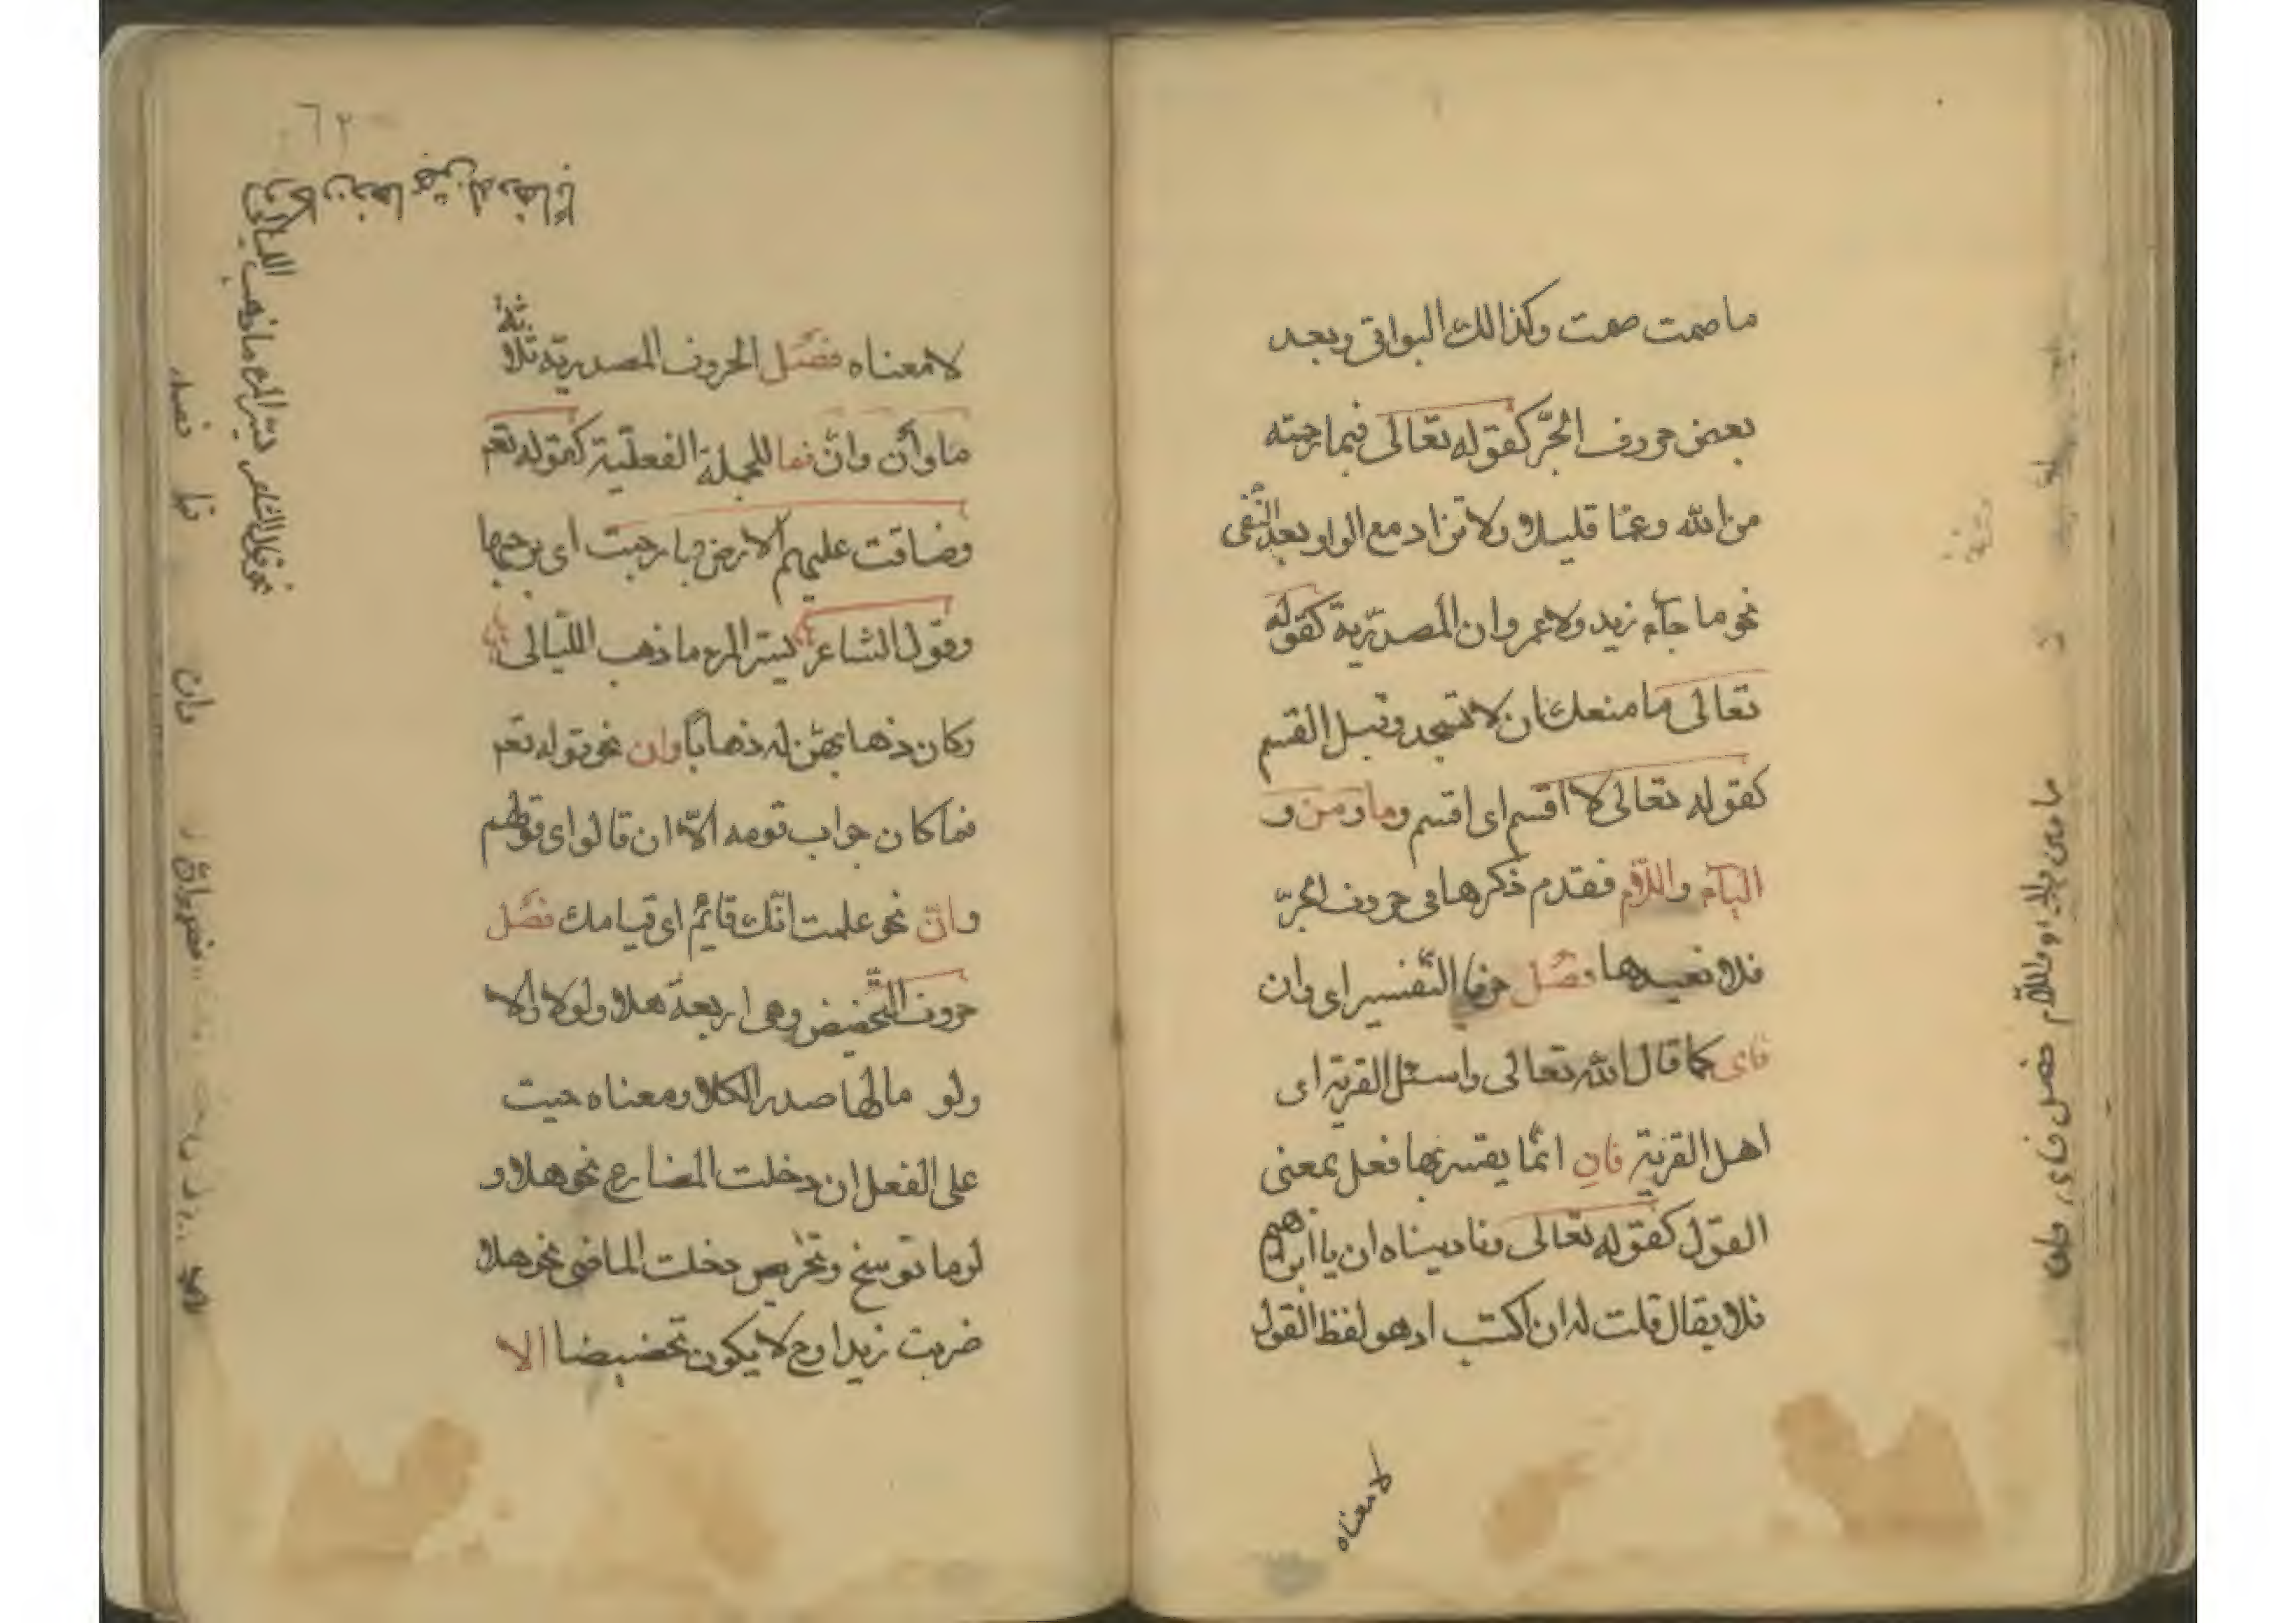 ما صمت صمت وكذالك البواقي وبعد
بعض حروف الجرّ كقوله تعالى فبما رحمته
من الله وعمّا قليلا ولا تزاد مع الواو بعد النّفى
نحو ما جآء زيد ولا عمر وان المصدريّة كقوله
تعالى ما منعك ان لا تسجد وقبل القسم
كقوله تعالى لا اقسم اى اقسم وما ومن و
البآء واللّام فقدم ذكرها فى حروف الجرّ
فلا نعيدها فصل حرفا التّفسير اى وان
فاى كما قال الله تعالى واسئل القرية اى
اهل القرية فان انمّا يفسّر بها فعل بمعنى
القول كقوله تعالى وناديناه ان يا ابراهيم
فلا يقال قلت له ان اكتب اذ هو لفظ القول
لا معناه
ما ومن والباء واللّام فصل فاى وان
٦٢
لا معناه فصل الحروف المصدريّة ثلاثة
ما وأن وانّ فما للجملة الفعليّة كقوله تعم
وضاقت عليهم الارض بما رحبت اى برحبها
وقول الشاعر يسرّ المرء ما ذهب اللّيالى
وكان ذهابهنّ له ذهابًا وان نحو قوله تعم
فما كان جواب قومه الّا ان قالوا اى قولهم
وانّ نحو علمت انّك قائم اى قيامك فصل
حروف التّحضيض وهى اربعة هلا ولولا والا
ولو ما لها صدر الكلا ومعناه حيث
على الفعل ان دخلت المضارع نحو هلا و
لوما توسخ وتحريص دخلت الماضى نحو هلا
ضربت زيدا وح لا يكون تحضيضا الا
نحو قول الشاعر يسرّ المرء ما ذهب الليالى
وكان ذهابهنّ له ذهابا
فصل
فما
وان